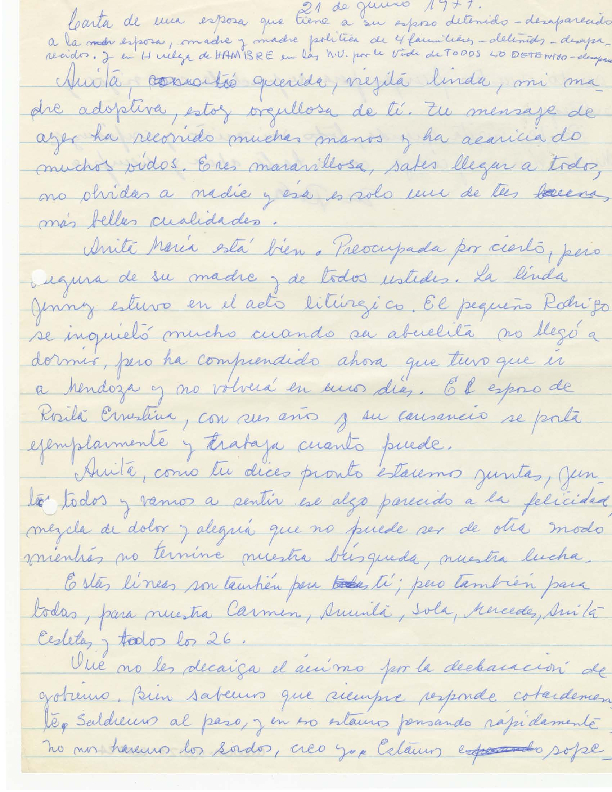 21 de junio 1977.
Carta de una esposa que tiene a su esposo detenido-desaparecido
a la esposa, madre y madre política de 4 familiares-detenidos-desapa-
recidos. y en Huelga de HAMBRE en las N.U. por la vida de TODOS LO DETENIDO-desapa
Anita, querida, viejita linda, mi ma-
dre adoptiva, estoy orgullosa de ti. Tu mensaje de
ayer ha recorrido muchas manos y ha acariciado
muchos oídos. Eres maravillosa, sabes llegar a todos,
no olvidas a nadie y esa es solo una de tus
más bellas cualidades.
Anita María está bien. Preocupada por cierto, pero
segura de su madre y de todos ustedes. La linda
Jenny estuvo en el acto litúrgico. El pequeño Rodrigo
se inquietó mucho cuando su abuelita no llegó a
dormir, pero ha comprendido ahora que tuvo que ir
a Mendoza y no volverá en unos días. El esposo de
Rosita Ernestina, con sus años y su cansancio se porta
ejemplarmente y trabaja cuanto puede.
Anita, como tu dices pronto estaremos juntas, jun-
tos todos y vamos a sentir ese algo parecido a la felicidad,
mezcla de dolor y alegría que no puede ser de otro modo
mientras no termine nuestra búsqueda, nuestra lucha.
Estas líneas son también para ti; pero también para
todas, para nuestra Carmen, Sola, Mercedes, Anita
y todos los 26.
Que no les decaiga el ánimo por la declaración de
gobierno. Bien sabemos que siempre responde cobardemen
te. Saldremos al paso, y en eso estamos pensando rápidamente
no nos haremos los sordos, creo yo. Estamos sope-